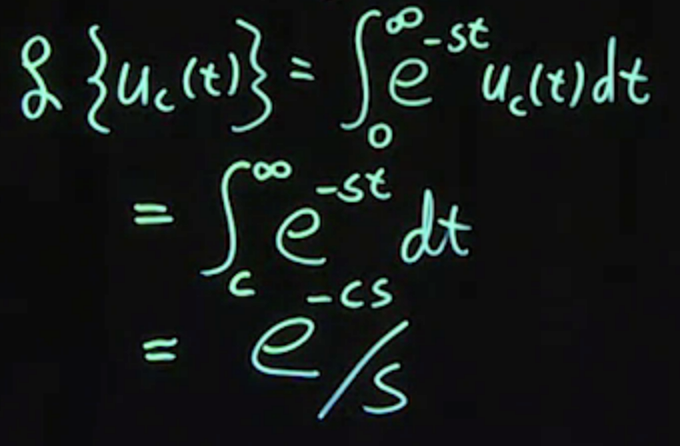 ℒ{u_c(t)} = ∫_0^∞ e^{-st} u_c(t) dt
= ∫_c^∞ e^{-st} dt
= e^{-cs}/s